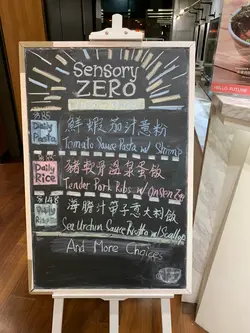 Sensory
ZERO
$85
Daily
Pasta
鮮蝦茄汁意粉
Tomato Sauce Pasta w/ Shrimp
Daily
Rice
豬軟骨溫泉蛋飯
Tender Pork Ribs w/ Onsen Egg
$148
海膽汁帶子意大利飯
Sea Urchin Sauce Risotto w/ Scallop
And More Choices
HELLO FUTURE